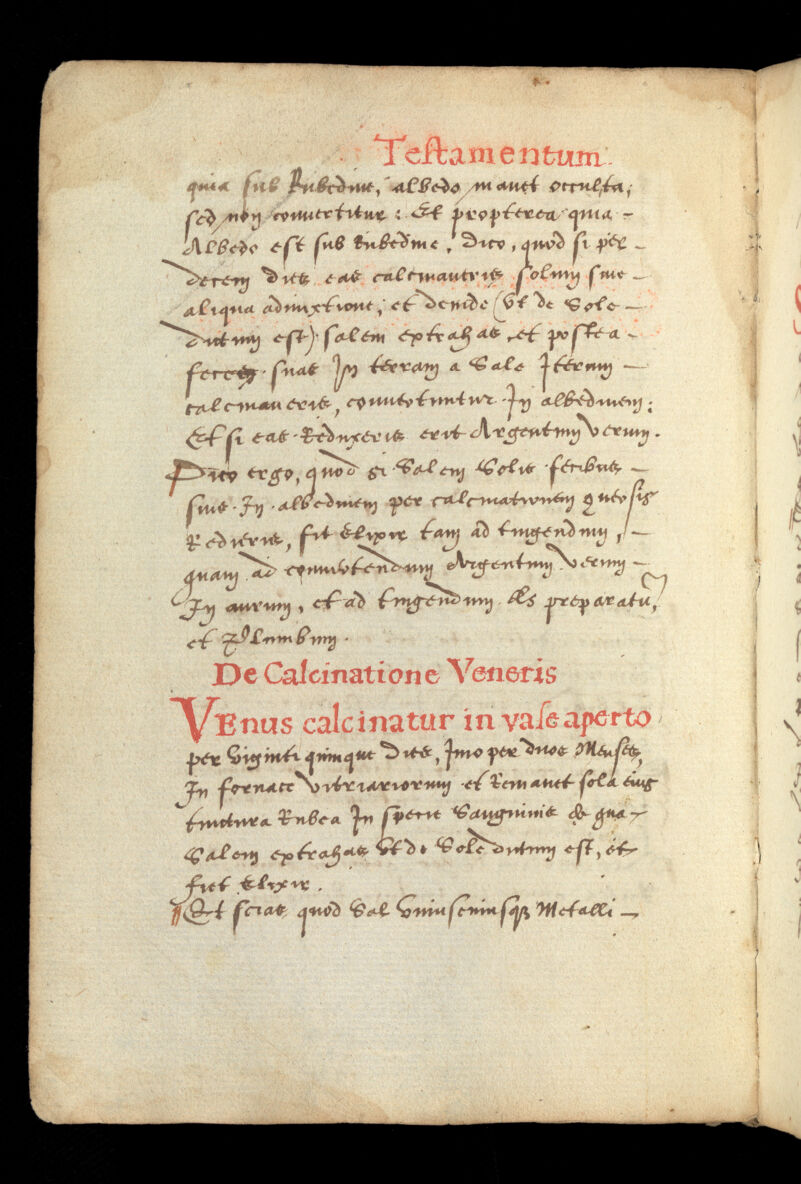 Testamentum
quia sub Rubedine, albedo manet occulta,
sed non convertitur: Et propterea quia -
Albedo est sub rubedine. Dico, quod si per -
decem dies eas calcinaveris solum sine -
aliqua admixtione, et deinde (vt de Sole -
dictum est) salem extrahas, et postea -
feces suas In terram a Sale Iterum -
calcinaveris, convertuntur In albedinem:
Et si eas Reduxeris erit Argentum verum.
Dico ergo, quod si Salem Solis fecibus -
suis In albedinem per calcinationem conversis
Redieris, fit Elixir tam ad tingendum, -
quam ad convertendum Argentum verum -
In aurum, et ad tingendum Æs preparatū,
et Plumbum.
De Calcinatione Veneris
VEnus calcinatur in vase aperto
per viginti quinque Dies, Imo per duos Menses,
In fornace vitriariorum et Remanet sola eius
tinctura Rubea In specie Sanguinis de qua -
Salem extrahas vt de Sole dictum est, et
fiet Elixir.
Et scias quod Sal vniuscuiusqȝ Metalli -